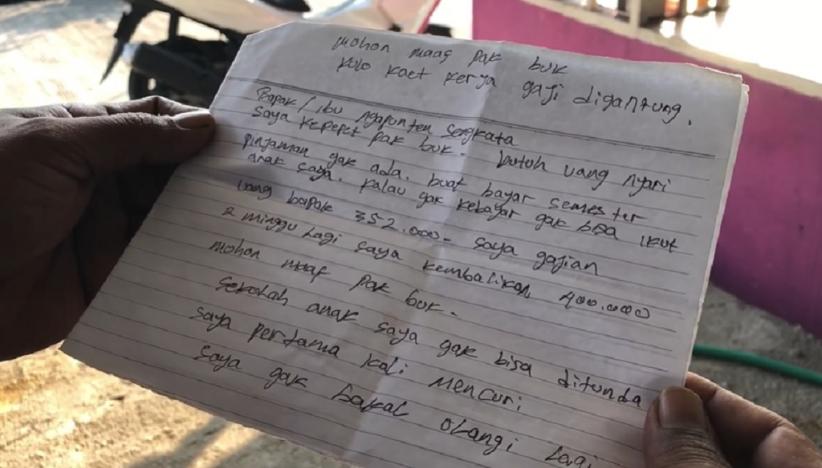 mohon maaf pak buk
kulo kaet kerja gaji digantung.
Bapak/ibu ngapunten sengkata
saya kepepet pak buk. butuh uang nyari
pinjaman gak ada. buat bayar semester
anak saya. kalau gak kebayar gak bisa ikut
uang bapak 352.000- saya gajian
2 minggu lagi saya kembalikan 400.000
mohon maaf pak buk.
sekolah anak saya gak bisa ditunda
saya pertama kali mencuri
saya gak bakal olangi lagi